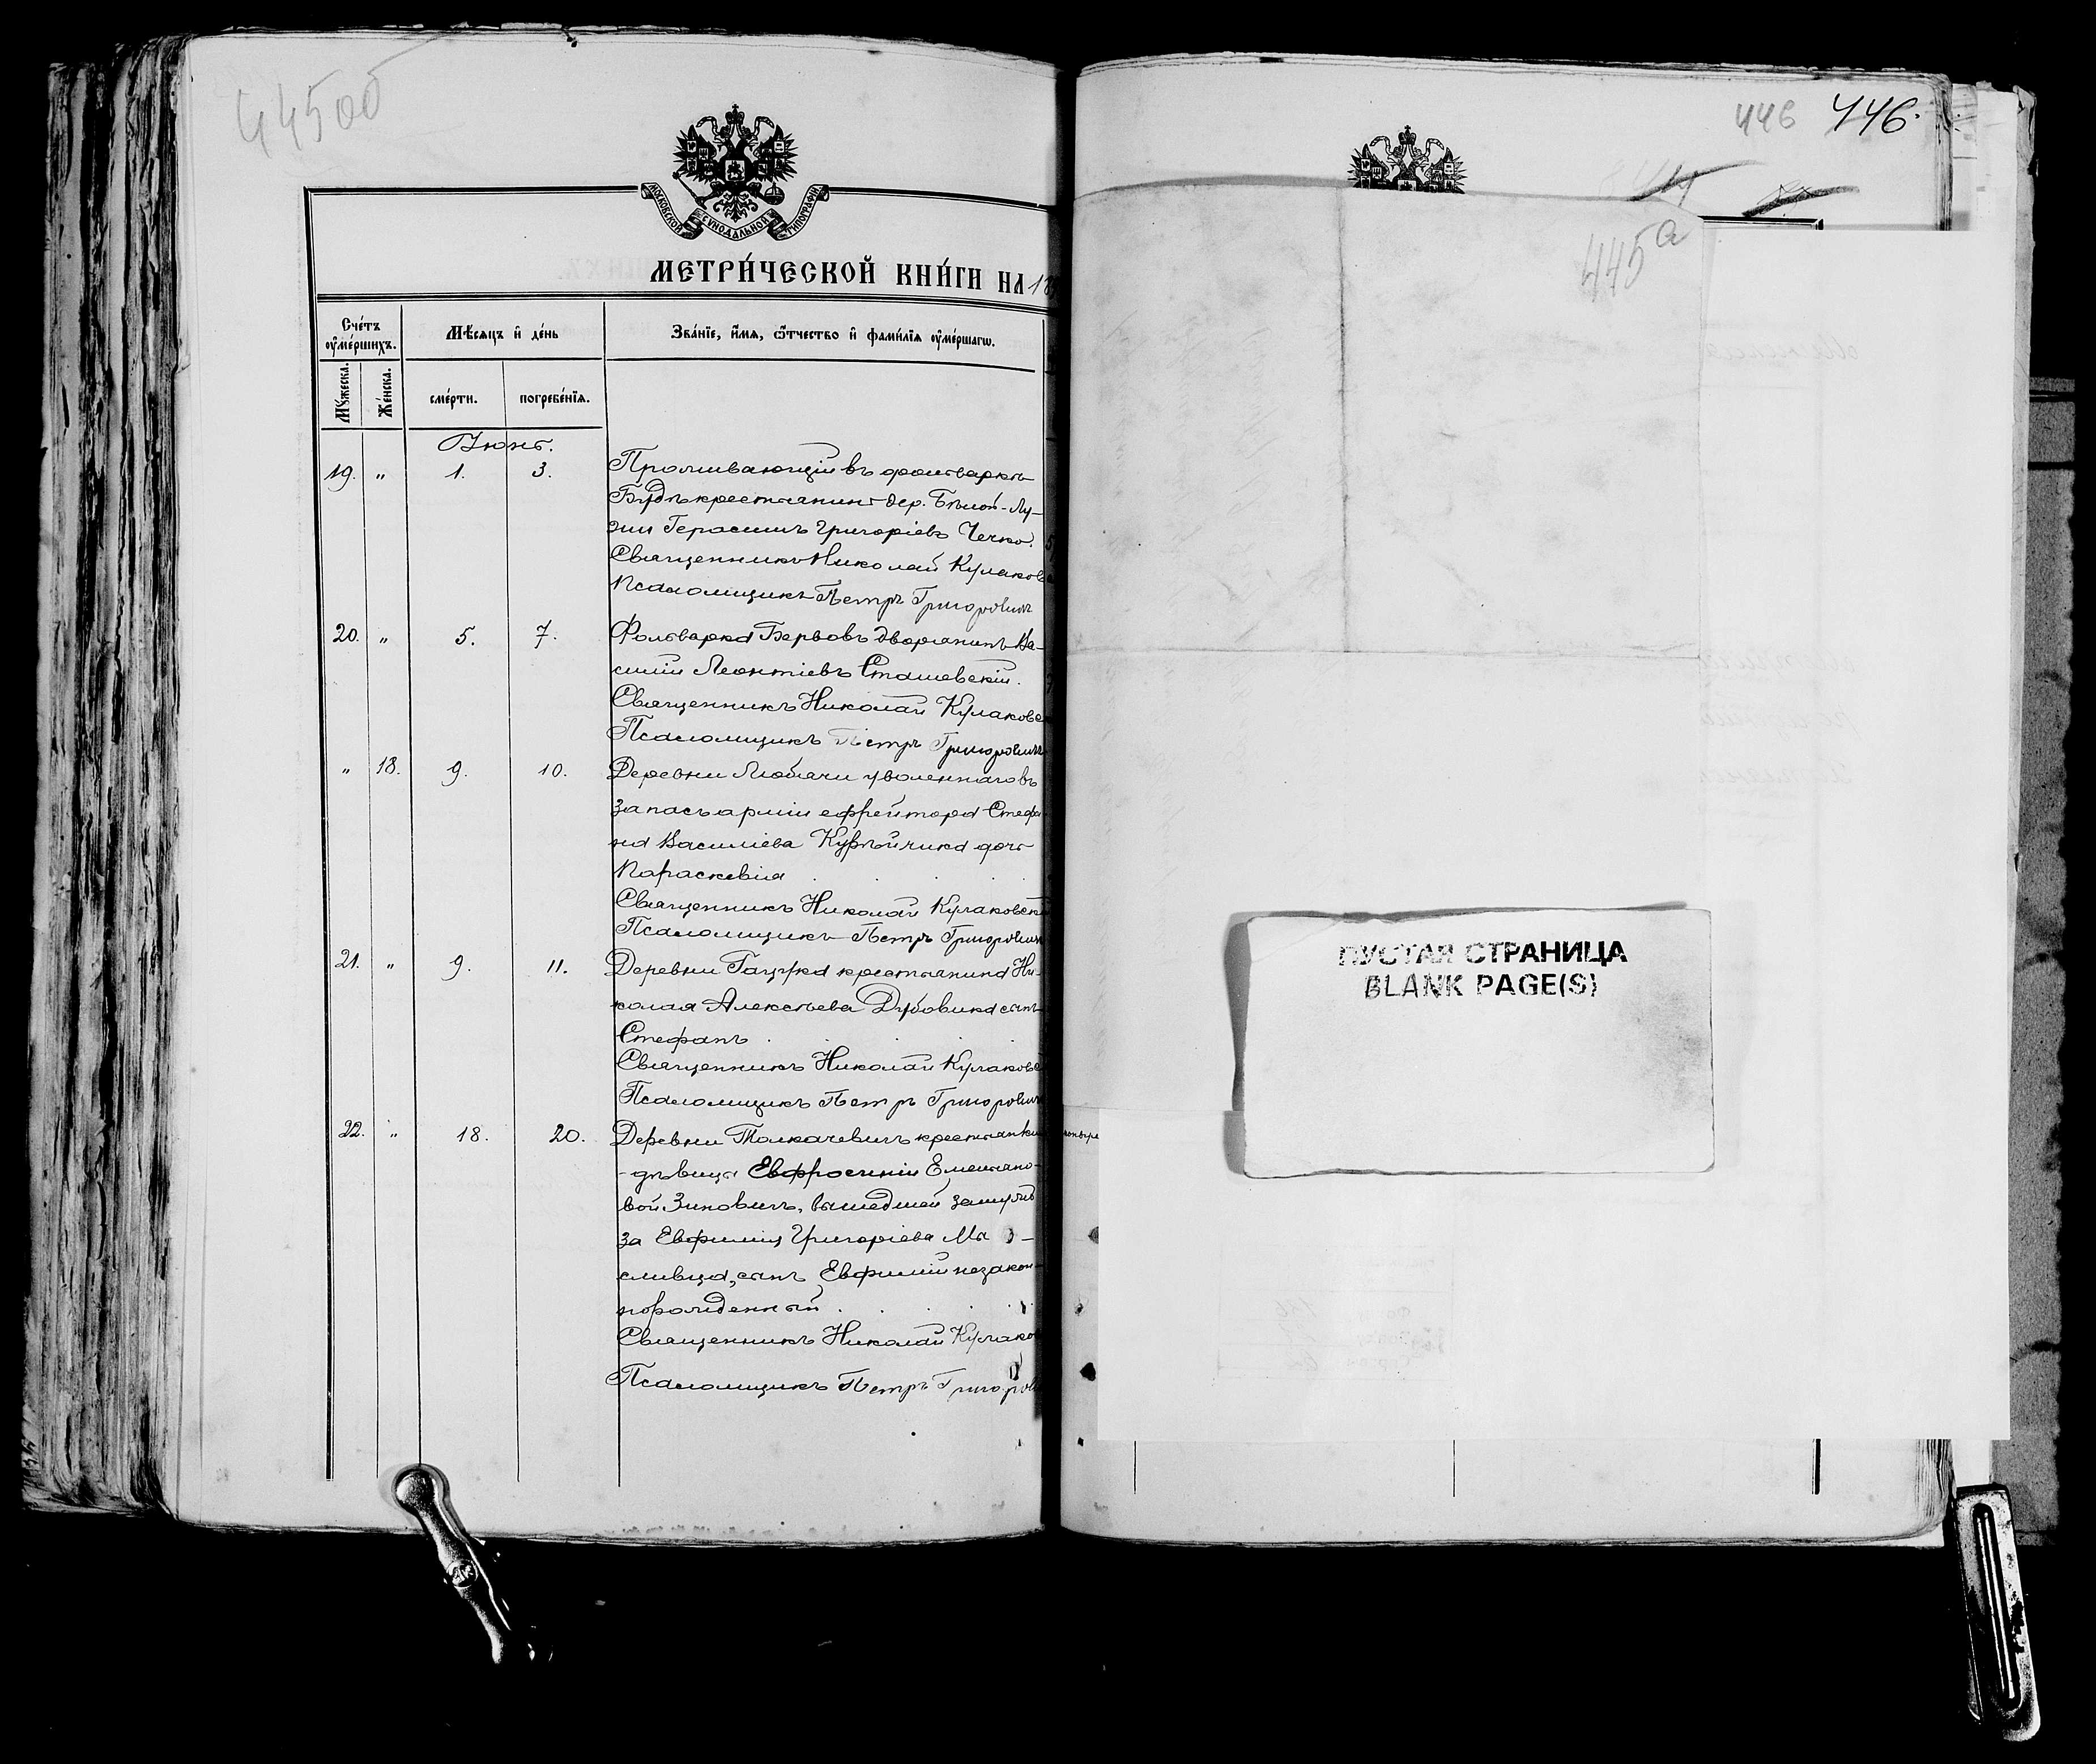 445об
МОСКОВСКОЙ СѴНОДАЛЬНОЙ ТИПОГРАФІИ
МЕТРИ́ЧЕСКОЙ КНИ́ГИ НА 18
Счéтъ оу҆мéршихъ.
Мѣ́сяцъ и҆ дéнь
Звáнїе, и҆́мѧ, ѻ҆́тчество и҆ фамѝлїѧ оу҆мéршагѡ.
Мꙋ́жеска.
Жéнска.
смéрти.
погребéнїѧ.
Іюнь.
19. " 1. 3. Проживающій въ фольваркѣ
Будѣ крестьянинъ дер. Бѣлой-Лу-
жи Герасимъ Григоріевъ Чечко.
Священникъ Николай Кулаковс
Псаломщикъ Петръ Григоровичъ
20. " 5. 7. Фольварка Дворянинъ Ва-
силій Леонтіевъ Сташевскій.
Священникъ Николай Кулаковс
Псаломщикъ Петръ Григоровичъ
" 18. 9. 10. Деревни уволеннаго въ
запасъ арміи ефрейтора Стефа
на Василіева Курьйчика дочь
Параскевія
Священникъ Николай Кулаковск
Псаломщикъ Петръ Григорович
21. " 9. 11. Деревни Гацука крестьянина Ни-
колая Алексѣева Дубовика сынъ
Стефанъ
Священникъ Николай Кулаковс
Псаломщикъ Петръ Григорович
22. " 18. 20. Деревни Толкачевичъ крестьянки
-дѣвицы Евфросиніи Емельяно-
вой Зиновичъ, вышедшей замужъ
за Евфимія Григоріева Ма -
сливца, сынъ Евфимій незакон-
норожденный
Священникъ Николай Кулаков
Псаломщикъ Петръ Григоров
446 446.
445а
ПУСТАЯ СТРАНИЦА
BLANK PAGE(S)